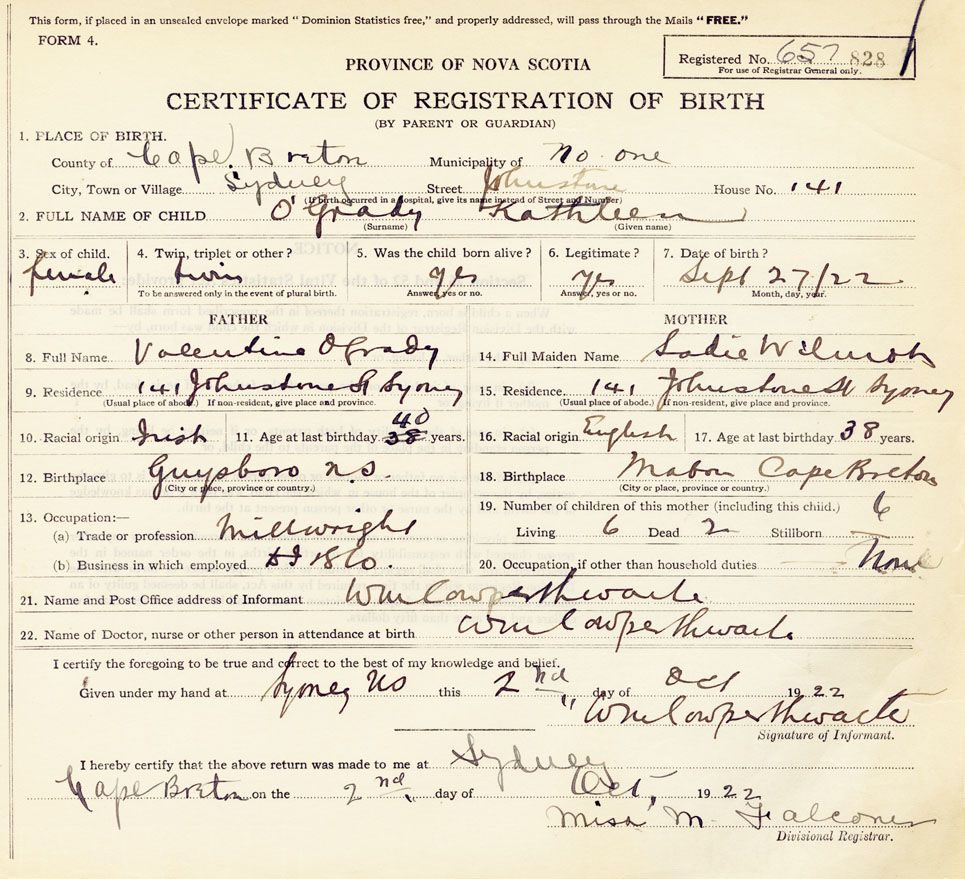 This form, if placed in an unsealed envelope marked "Dominion Statistics free," and properly addressed, will pass through the Mails "FREE."
FORM 4.
Registered No. 657 828
For use of Registrar General only.
PROVINCE OF NOVA SCOTIA
CERTIFICATE OF REGISTRATION OF BIRTH
(BY PARENT OR GUARDIAN)
1. PLACE OF BIRTH.
County of Cape Breton Municipality of no one
City, Town or Village Sydney Street Johnstone House No. 141
(If birth occurred in a hospital, give its name instead of Street and Number)
2. FULL NAME OF CHILD O'Grady Kathleen
(Surname) (Given name)
3. Sex of child. 4. Twin, triplet or other? 5. Was the child born alive? 6. Legitimate? 7. Date of birth?
female twin yes yes Sept 27/22
To be answered only in the event of plural birth. Answer, yes or no. Answer, yes or no. Month, day, year.
FATHER MOTHER
8. Full Name Valentine O Grady 14. Full Maiden Name Sadie Wilmot
9. Residence 141 Johnstone St Syney 15. Residence 141 Johnstone St Syney
(Usual place of abode.) If non-resident, give place and province. (Usual place of abode.) If non-resident, give place and province.
10. Racial origin Irish 11. Age at last birthday 38 40 years. 16. Racial origin English 17. Age at last birthday 38 years.
12. Birthplace Guysboro N.S. 18. Birthplace Mabou Cape Breton
(City or place, province or country.) (City or place, province or country.)
13. Occupation:— 19. Number of children of this mother (including this child.) 6
(a) Trade or profession Millwright Living 6 Dead 2 Stillborn
(b) Business in which employed 20. Occupation, if other than household duties None
21. Name and Post Office address of Informant Wm Cowperthwaite
22. Name of Doctor, nurse or other person in attendance at birth Wm Cowperthwaite
I certify the foregoing to be true and correct to the best of my knowledge and belief.
Given under my hand at Syney NS this 2nd day of Oct 1922
" Wm Cowperthwaite
Signature of Informant.
I hereby certify that the above return was made to me at Sydney
Cape Breton on the 2nd day of Oct, 1922
Miss M. Falconer
Divisional Registrar.